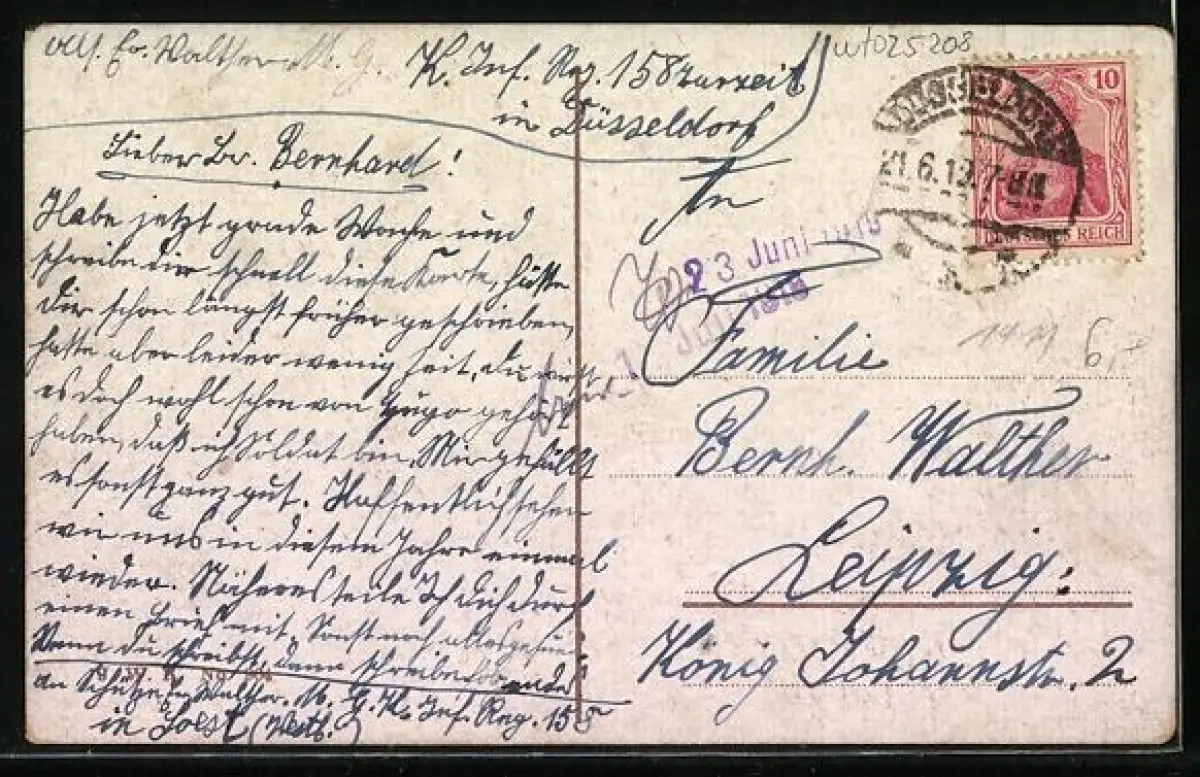 Abs. Er. Walther M. G.
K. Inf. Reg. 158 zurzeit
in Düsseldorf
wf025208
10
DEUTSCHES REICH
DÜSSELDORF
21.6.19. 7-8
Lieber Br. Bernhard!
Habe jetzt grade Wache und
schreibe dir schnell diese Karte, hätte
Dir schon längst früher geschrieben,
hatte aber leider wenig Zeit, du wirst
es doch wohl schon von Hugo gehört
haben, daß ich Soldat bin. Mir gefällt
es sonst ganz gut. Hoffentlich sehen
wir uns in diesem Jahre einmal
wieder. Näheres teile Ich Dich durch
einen Brief mit. Sonst noch alles gesund
Wenn du schreibst, dann schreibe
an Schütze Walther. M. G. K. Inf. Reg. 158
in Soest (Westf.)
An
23 Juni 1919
Juni 1919
Familie
Bernh. Walther
Leipzig:
König Johannstr. 2